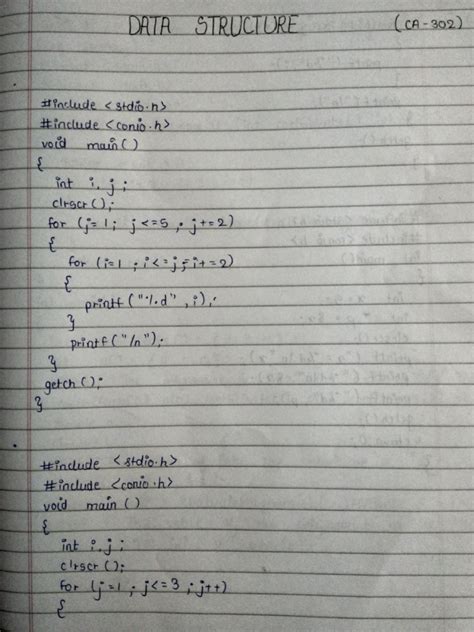 DATA STRUCTURE (CA-302)
#include <stdio.h>
#include <conio.h>
void main()
{
int i, j ;
clrscr();
for (j=1; j<=5 ; j+=2)
{
for (i=1 ; i<=j ; i+=2)
{
printf("%d", i);
}
printf("/n");
}
getch();
}
#include <stdio.h>
#include <conio.h>
void main()
{
int i, j ;
clrscr();
for (j=1 ; j<=3 ; j++)
{